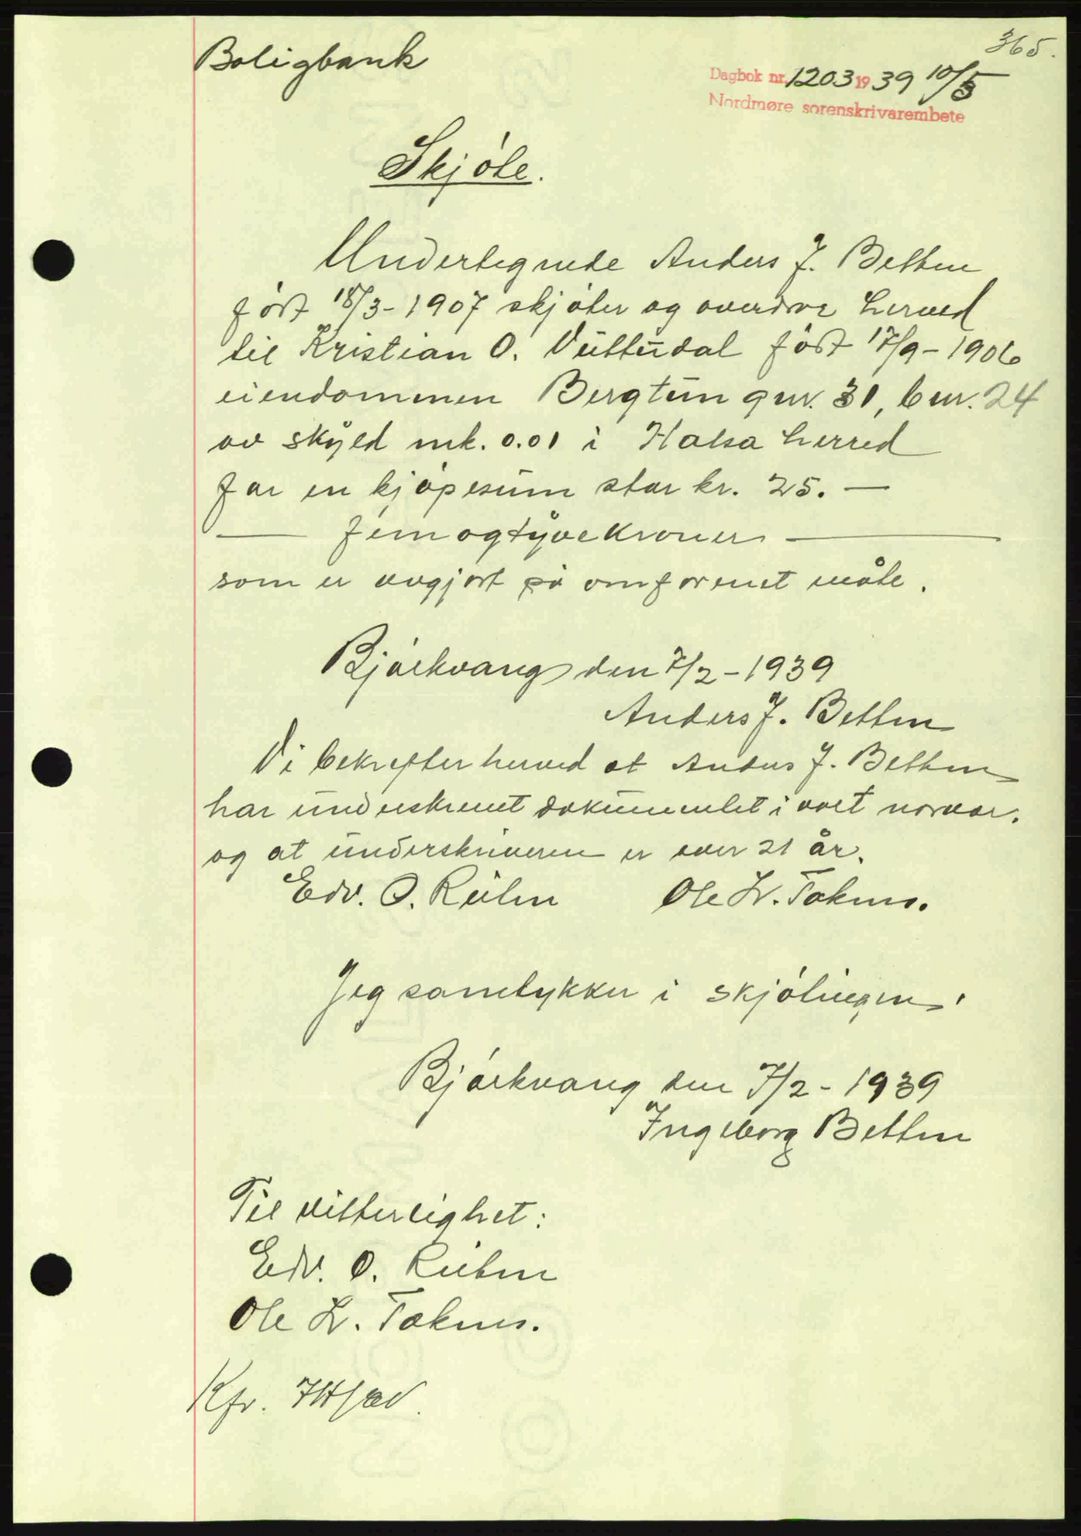 365.
Boligbank
Dagbok nr. 1203 1939 10/5
Nordmøre sorenskrivarembete
Skjöte.
Undertegnede Anders J. Betten
föst 18/3-1907 skjöter og overdrar herved
til Kristian O. Vüttüdal föst 17/9-1906
eiendommen Bergtün gnr. 31, bnr. 24
av skyld mk. 0.01 i Halsa herred
for en kjöpesüm stor kr. 25. —
— femogtyve kroner —
som er avgjort på omforenet måte.
Bjørkvang den 7/2-1939
Anders J. Betten
Vi bekrefter herved at Anders J. Betten
har ünderskrevet dokümentet i vort nærvær.
og at ünderskriveren er over 21 år.
Edv. O. Ole L.
Jeg samtykker i skjötingen.
Bjørkvang den 7/2-1939
Ingeborg Betten
Til vitterlighet:
Edv. O.
Ole L.
Kfr.